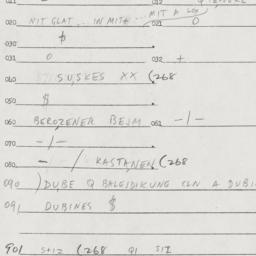 020 NIT GLAT... IN MITN MIT A LOX
021 O
030 $
031 O 032 +
040 SUSKES XX (268
050 $
060 BEROZENER BEJM 062 -1-
070 -1-
080 - / KASTANEN (268
090 ) DUBE Q BALEIDIKUNG KLN A DUBI
091 DUBINES $
901 S+12 (268 Q1 S12